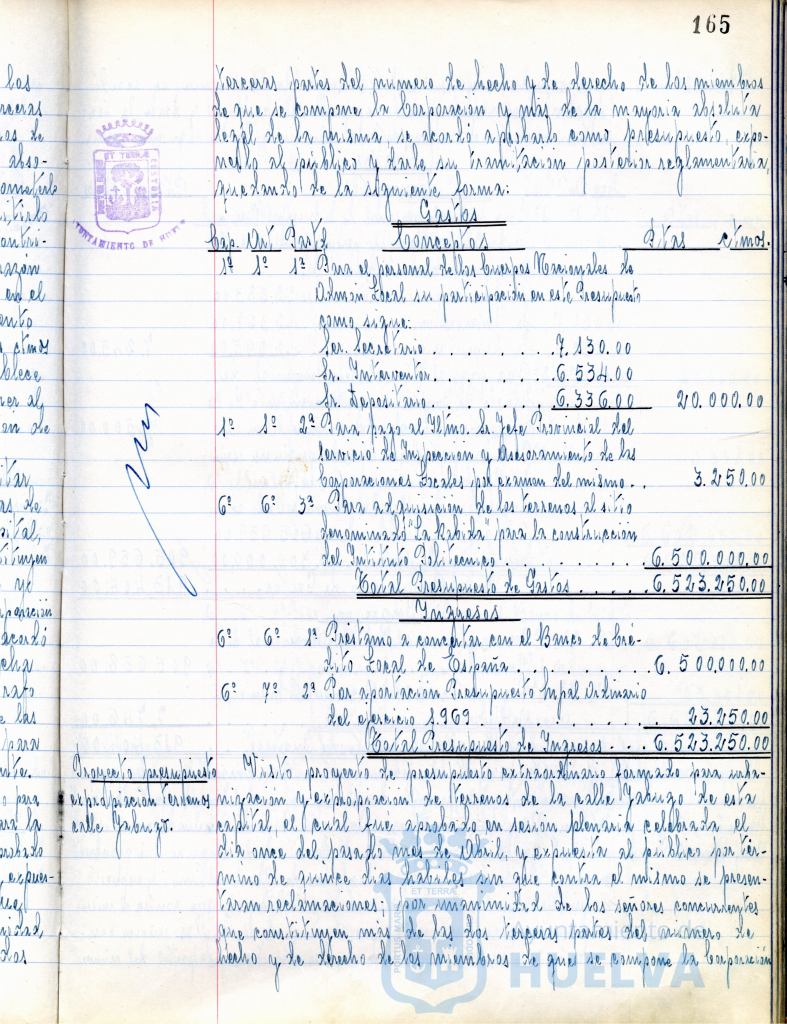 165
terceras partes del número de hecho y de derecho de los miembros
de que se compone la Corporación y mas de la mayoria absoluta
legal de la misma, se acordó aprobarlo como presupuesto, expo-
nerlo al público y darle su tramitación posterior reglamentaria,
quedando de la siguiente forma:
Gastos
Cap. Art Partd Conceptos Ptas ctmos.
1º 1º 1ª Para el personal de los Cuerpos Nacionales de
Admón Local su participación en este Presupuesto
como sigue:
Sr. Secretario . . . . . . . . 7.130.00
Sr. Interventor . . . . . . . . 6.534.00
Sr. Depositario . . . . . . . . 6.336.00 20.000.00
1º 1º 2ª Para pago al Iltmo. Sr. Jefe Provincial del
Servicio de Inspección y Asesoramiento de las
Corporaciones Locales por examen del mismo . . 3.250.00
6º 6º 3ª Para adquisición de los terrenos al sitio
denominado "La Rabida" para la construcción
del Instituto Politecnico . . . . . . . . 6.500.000.00
Total Presupuesto de Gastos . . . . . 6.523.250.00
Ingresos
6º 6º 1ª Préstamo a concertar con el Banco de Cré-
dito Local de España . . . . . . . . 6.500.000.00
6º 7º 2ª Por aportación Presupuesto Mpal Ordinario
del ejercicio 1.969 . . . . . . . . 23.250.00
Total Presupuesto de Ingresos . . . 6.523.250.00
Proyecto presupuesto
expropiación terrenos
calle Jabugo.
Visto proyecto de presupuesto extraordinario formado para urba-
nización y expropiación de terrenos de la calle Jabugo de esta
capital, el cual fué aprobado en sesión plenaria celebrada el
dia once del pasado mes de Abril, y expuesta al público por tér-
mino de quince dias habiles sin que contra el mismo se presen-
taran reclamaciones; por unanimidad de los señores concurrentes
que constituyen mas de las dos terceras partes del número de
hecho y de derecho de los miembros de que se compone la Corporación
Ayuntamiento de
HUELVA